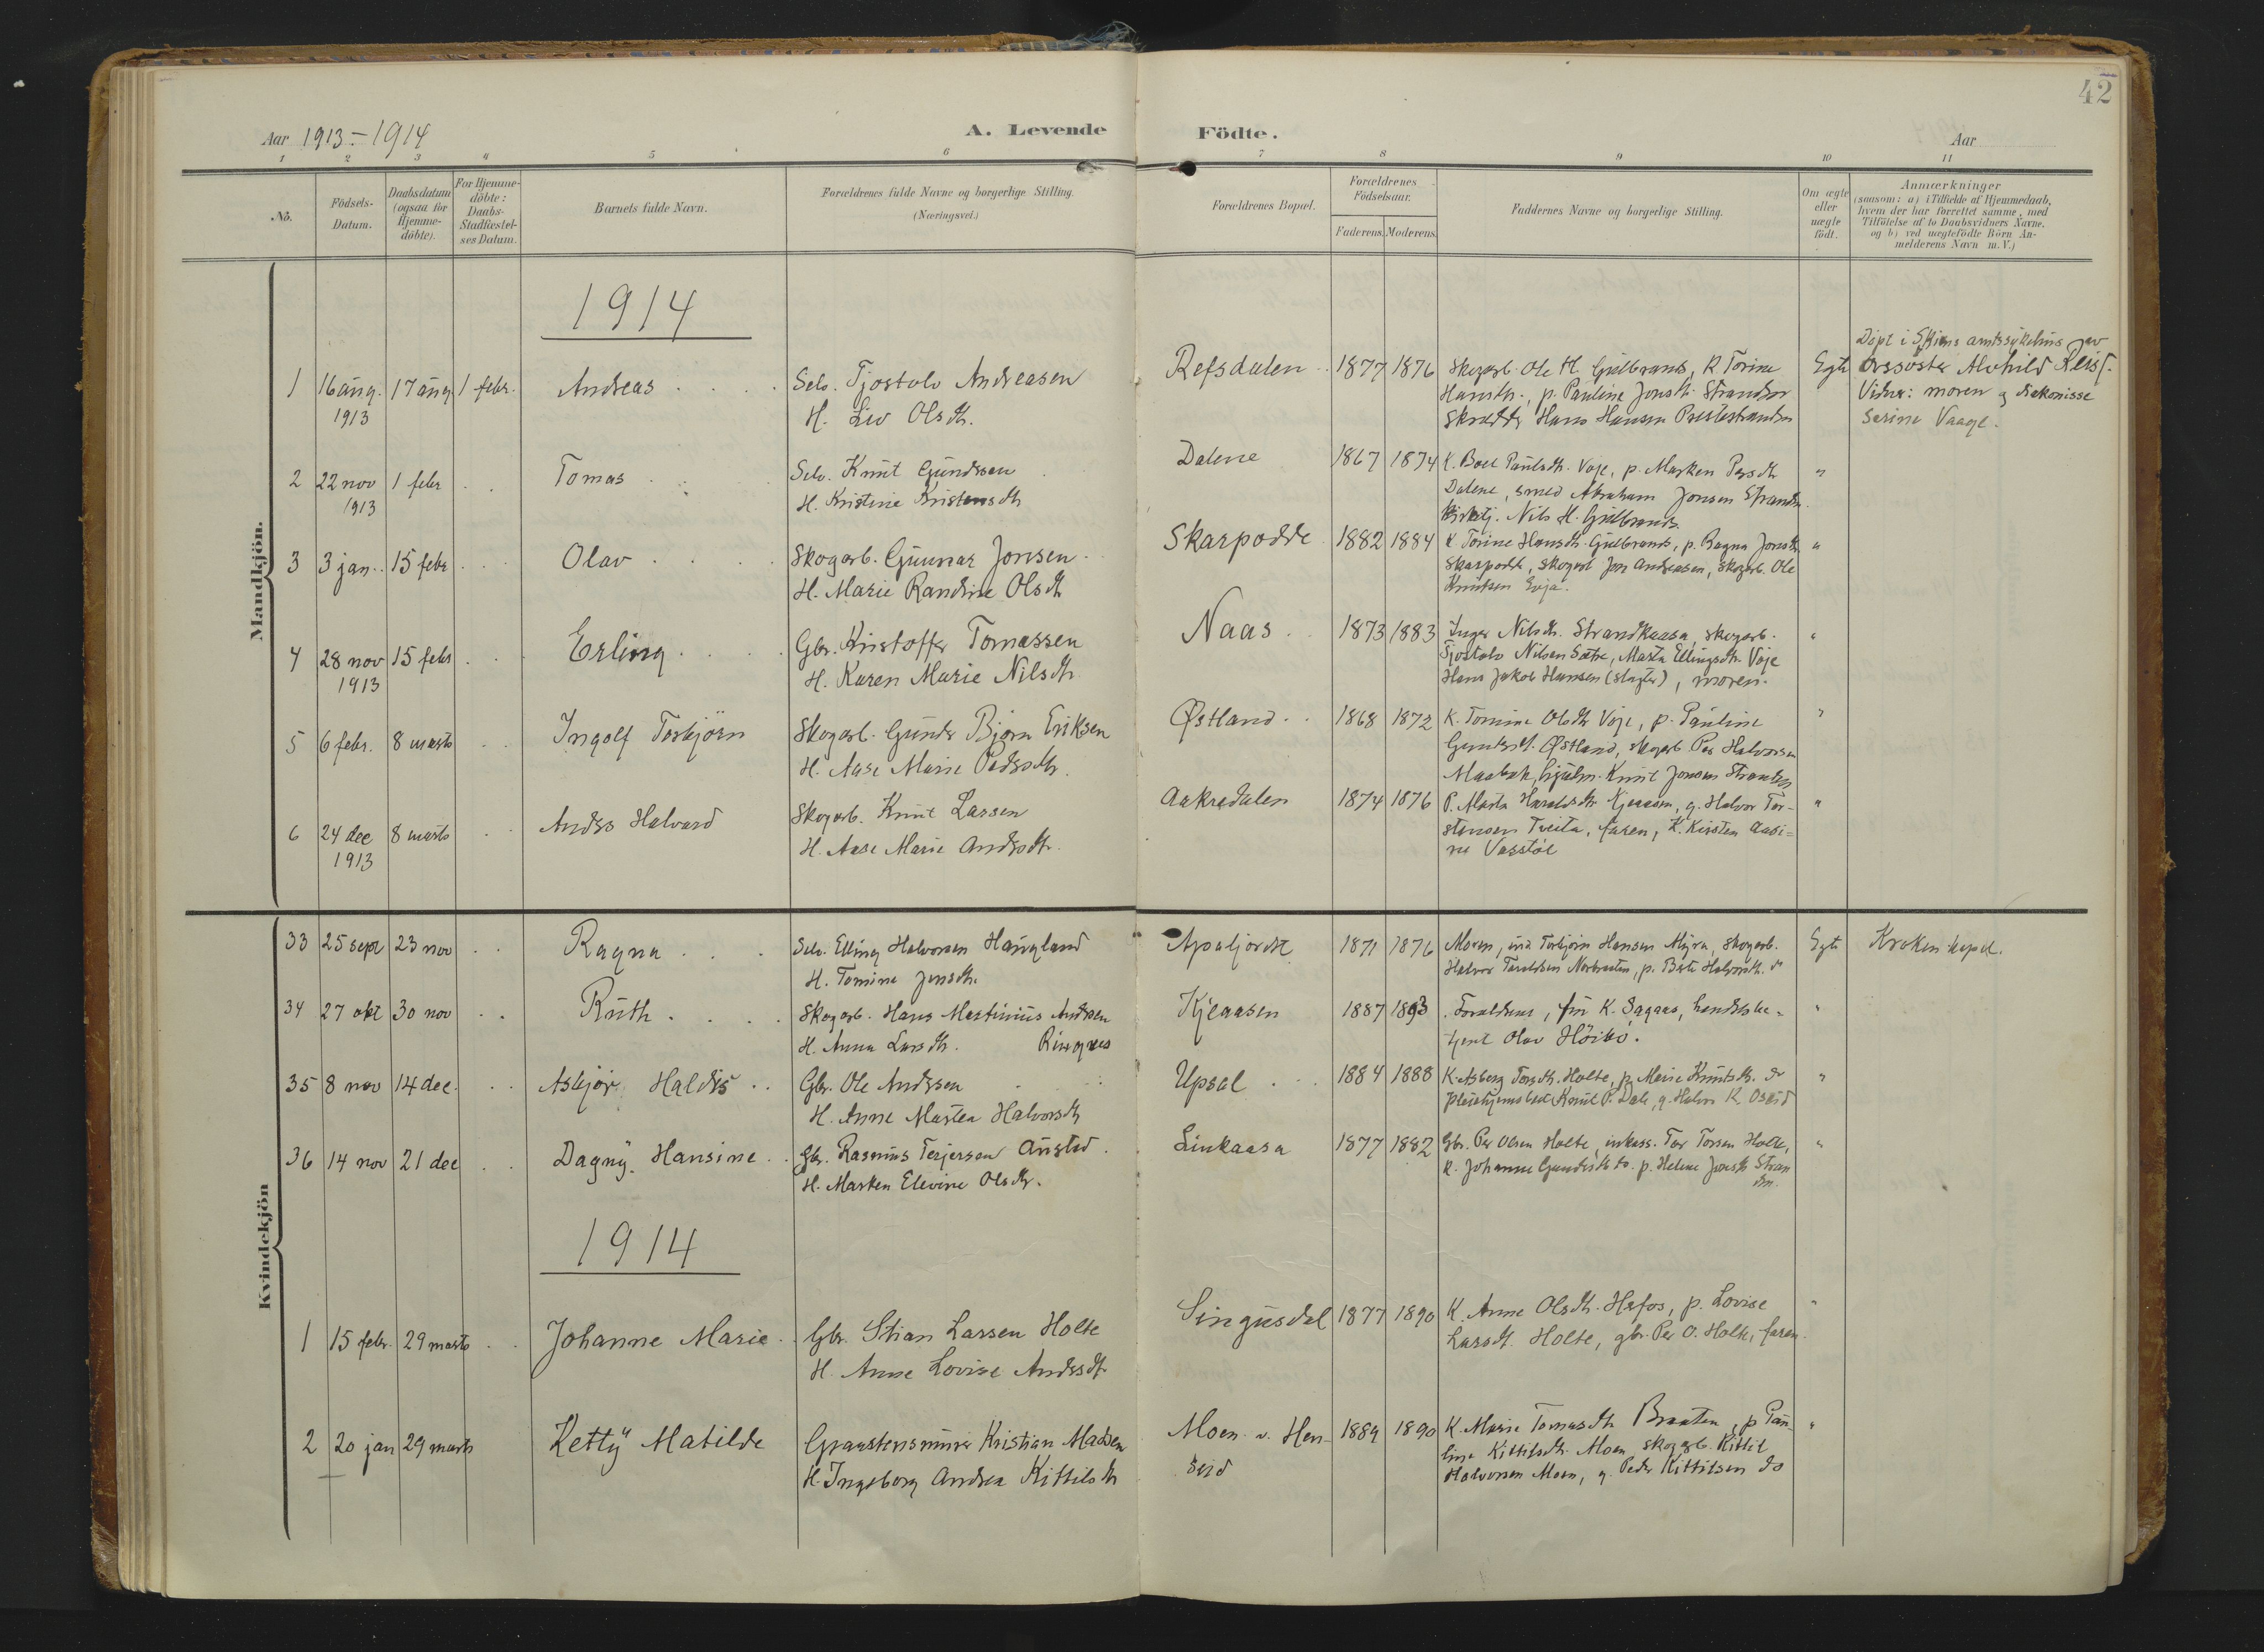 42
Aar 1913-1914
A. Levende Födte.
Aar
1 2 3 4 5 6 7 8 9 10 11
No.
Födsels-
Datum.
Daabsdatum
(ogsaa for
Hjemme-
döbte).
For Hjemme-
döbte:
Daabs-
Stadfæstel-
ses Datum.
Barnets fulde Navn.
Forældrenes fulde Navne og borgerlige Stilling.
(Næringsvei.)
Forældrenes Bopæl.
Forældrenes
Födselsaar.
Faderens. Moderens.
Faddernes Navne og borgerlige Stilling.
Om ægte
eller
uægte
födt.
Anmærkninger
(saasom: a) i Tilfælde af Hjemmedaab,
hvem der har forrettet samme, med
Tilföielse af to Daabsvidners Navne.
og b) ved uægtefödte Börn An-
melderens Navn m. V.)
Mandkjön.
1914
1 16 aug. 1913 17 aug 1 febr. Andreas
Selv. Tjostolv Andreasen
H. Liv Olsdtr.
Refsdalen 1877 1876
Skogarb. Ole H. Gulbrands, K Torine
Hansdtr., p. Pauline Jonsdtr. Stranden
Skrædder Hans Hansen Prestestranden
Egte
Döpt i Skiens amtssykehus av
Alvhild Reis
Vidner: moren og diakonisse
Serine Vaage.
2 22 nov 1913 1 febr Tomas
Selv. Knut Gundersen
H. Kristine Kristensdtr
Dalene 1867 1874
K. Boel Paulsdtr. Voje, p. Marken Persdtr
Dalene, smed Abraham Jonsen Stranden.
Kirketj. Nils H. Gulbrands
"
3 3 jan. 15 febr Olav
Skogarb. Gunnar Jonsen
H. Marie Randine Olsdtr
Skarpodde 1882 1884
K Torine Hansdtr. Gulbrands, p. Ragna Jonsdtr
Skarpodde, skogarb Jon Andreasen, skogarb. Ole
Knutsen
"
4 28 nov 1913 15 febr Erling
Gbr. Kristoffer Tomassen
H. Karen Marie Nilsdtr
Naas 1873 1883
Inger Nilsdtr. Strandkaasa, skogarb.
Tjostolv Nilsen Sætre, Marta Ellingsdtr Voje
Hans Jakob Hansen (slagter), moren.
"
5 6 febr. 8 marts Ingolf Torbjörn
Skogarb. Gunder Björn Eriksen
H. Aase Marie Pedersdtr.
Østland 1868 1872
K. Tomine Olsdtr Voje, p. Pauline
Gundersdt. Østland, skogarb Per Halvorsen
Knut Jonsen Stranden
"
6 24 dec 1913 8 marts Anders Halvard
Skogarb. Knut Larsen
H. Aase Marie Andersdtr.
Aakredalen 1874 1876
P. Marta Haraldsdtr Kjeaasen, g. Halvor Tor-
stensen Tveita, faren, K. Kirsten Aasi=
ne Vasstöl
"
Kvindekjön
33 25 sept 23 nov Ragna
Selv. Elling Halvorsen Haugland
H. Tomine Jensdtr.
Apaljordet 1871 1876
Moren, Torbjörn Hansen Myra, skogarb.
Halvor p. Berte Halvorsdtr. do
Egte
Kroken kapel.
34 27 okt 30 nov Ruth
Skogarb. Hans Martinius Andersen
H. Anna Larsdtr. Ringnes
Kjeaasen 1887 1893
Forældrene, fru K. Sagaas, handelsbe-
tjent Olav Höibö.
"
35 8 nov 14 dec. Asbjör Haldis
Gbr. Ole Andersen
H. Anne Martea Halvorsdtr
Upsal 1884 1888
K. Asberg Torsdtr. Holte, p. Marie Knutsdtr. do
Knut P. Dale, g. Halvor K. Oseid
"
36 14 nov 21 dec Dagny Hansine
Gbr. Rasmus Terjersen Austad
H. Marken Elevine Olsdtr.
Linkaasa 1877 1882
Gbr. Per Olsen Holte, Tor Torsen Holte,
K. Johanne Gundersdtr do. p. Helene Jensdtr Stran
den.
"
1914
1 15 febr. 29 marts Johanne Marie
Gbr. Stian Larsen Holte
H. Anne Lovise Andersdtr
Singusdal 1877 1890
K. Anne Olsdtr. Hefos, p. Lovise
Larsdt. Holte, gbr. Per O. Holte, faren.
"
2 20 jan 29 marts Ketty Matilde
Graastensminer Kristian Madsen
H. Ingeborg Andrea Kittilsdtr
Moen v. Hen-
seid
1884 1890
K. Marie Tomasdtr Braaten, p Pau-
line Kittilsdtr. Moen, skogarb. Kittil
Halvorsen Moen, g. Peder Kittilsen do
"